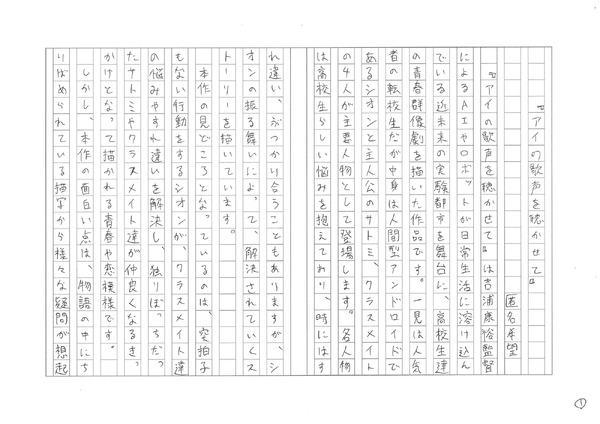 『アイの歌声を聴かせて』
匿名希望
『アイの歌声を聴かせて』は吉浦康裕監督
によるAIやロボットが日常生活に溶け込ん
でいる近未来の実験都市を舞台に、高校生達
の青春群像劇を描いた作品です。一見は人気
者の転校生だが中身は人間型アンドロイドで
あるシオンと主人公のサトミ、クラスメイト
の4人が主要人物として登場します。各人物
は高校生らしい悩みを抱えており、時にはす
れ違い、ぶつかり合うこともありますが、シ
オンの振る舞いによって、解決されていくス
トーリーを描いています。
本作の見どころとなっているのは、突拍子
もない行動をするシオンが、クラスメイト達
の悩みやすれ違いを解決し、独りぼっちだっ
たサトミやクラスメイト達が仲良くなるき、
かけとなって描かれる青春や恋模様です。
しかし、本作の面白い点は、物語の中にち
りばめられている描写から様々な疑問が想起
①